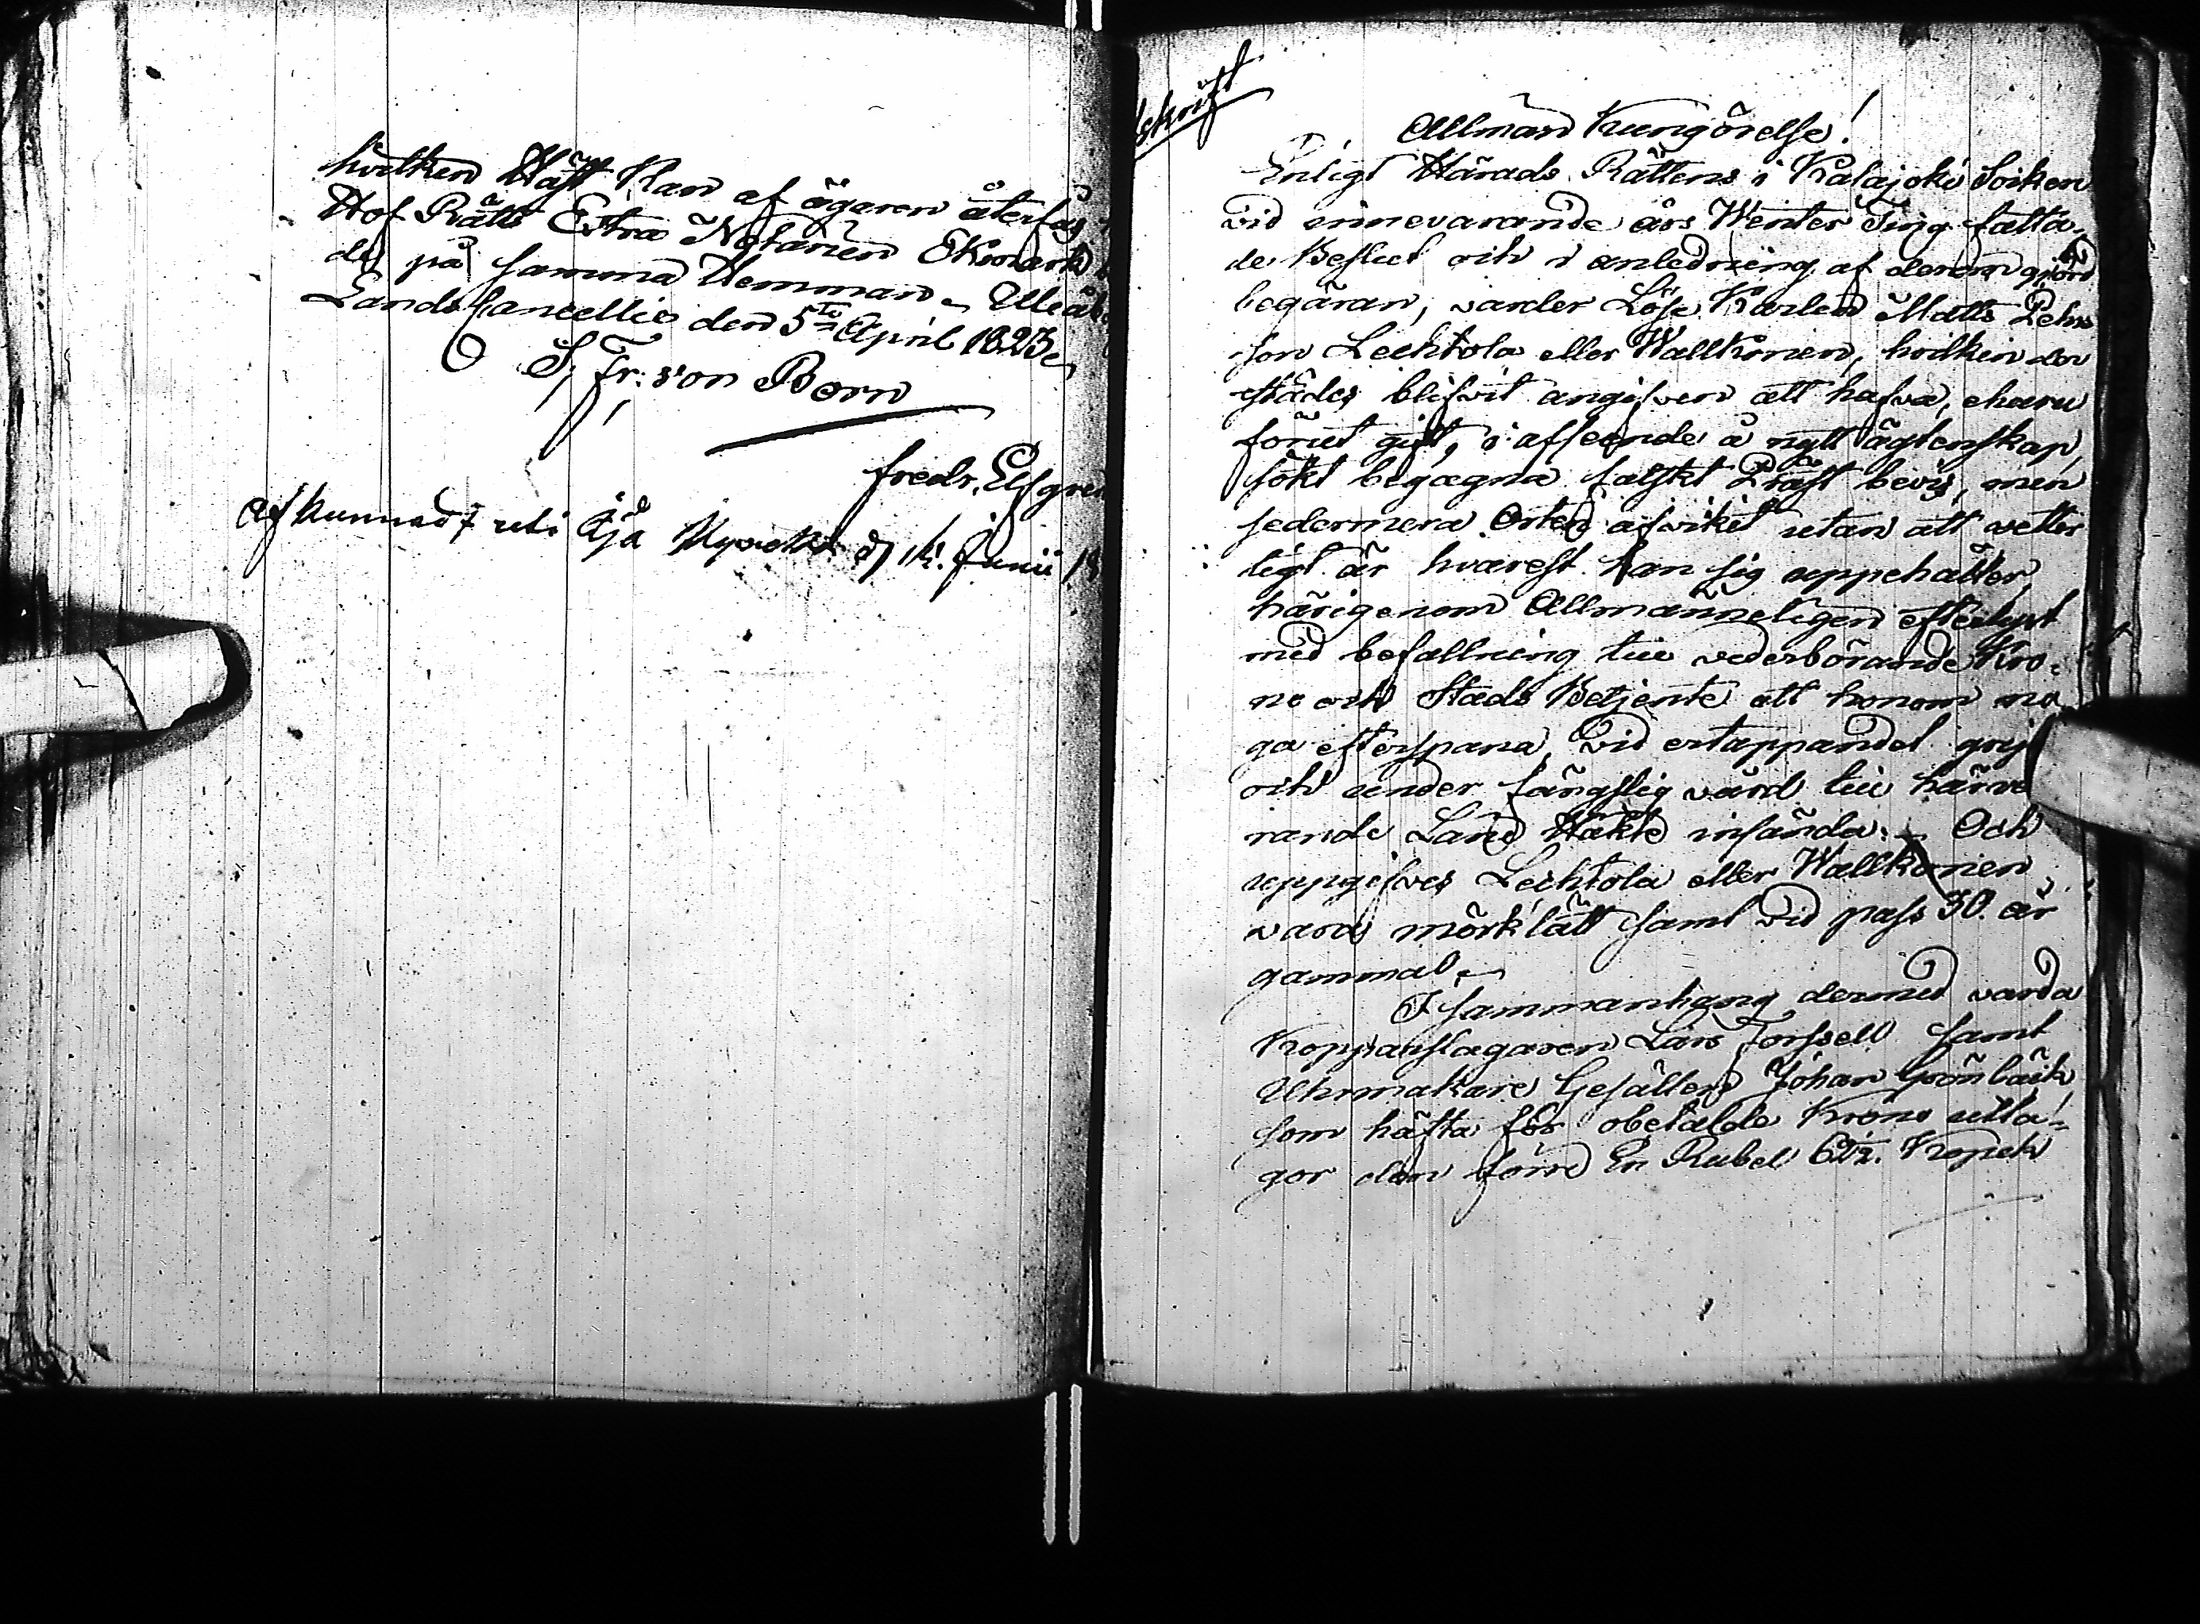 hvilken Häst kan af ägaren återfås
Hof Rätts Extra Notarien Ekmark
des på samma Hemman. Uleå
Lands Cancellie den 5te April 1823.
S. Fr: von Born
Fredr. Elfgren
Afkunnad uti Öja d. 1. Junii 18
skrift
Allmän Kungörelse!
Enligt Härads Rättens i Kalajoki Soiken
vid innevarande års Winter Ting fatta-
de Beslut och i anledning af derom gjord
begäran, varder Löse Karlen Matts Pehrs
son Lechtola eller Wallkonen, hvilken der
städes blifvit angifven att hafva, ehuru
förut gift, i afseende å nytt ägtenskap,
sökt begagna falskt Präst bevis, men
sedermera Orten afvikit utan att vetter
ligt är hvarest han sig uppehåller,
härigenom Allmänneligen efterlyst
med befallning till vederbörande Kro-
no och Stads Betjente att honom no
ga efterspana, vid ertappandet grip
och under fängslig vård till härva
rande Lands Häkte insända. Och
uppgifves Lechtola eller Wallkonen
vara mörklätt samt vid pass 30. år
gammal.
I sammanhang dermed varda
Kopparslagaren Lars Forssell samt
Uhrmakare Gesällen Johan Grönbäck,
som häfta för obetalde Krono utla-
gor den förre En Rubel 62½. Kopek